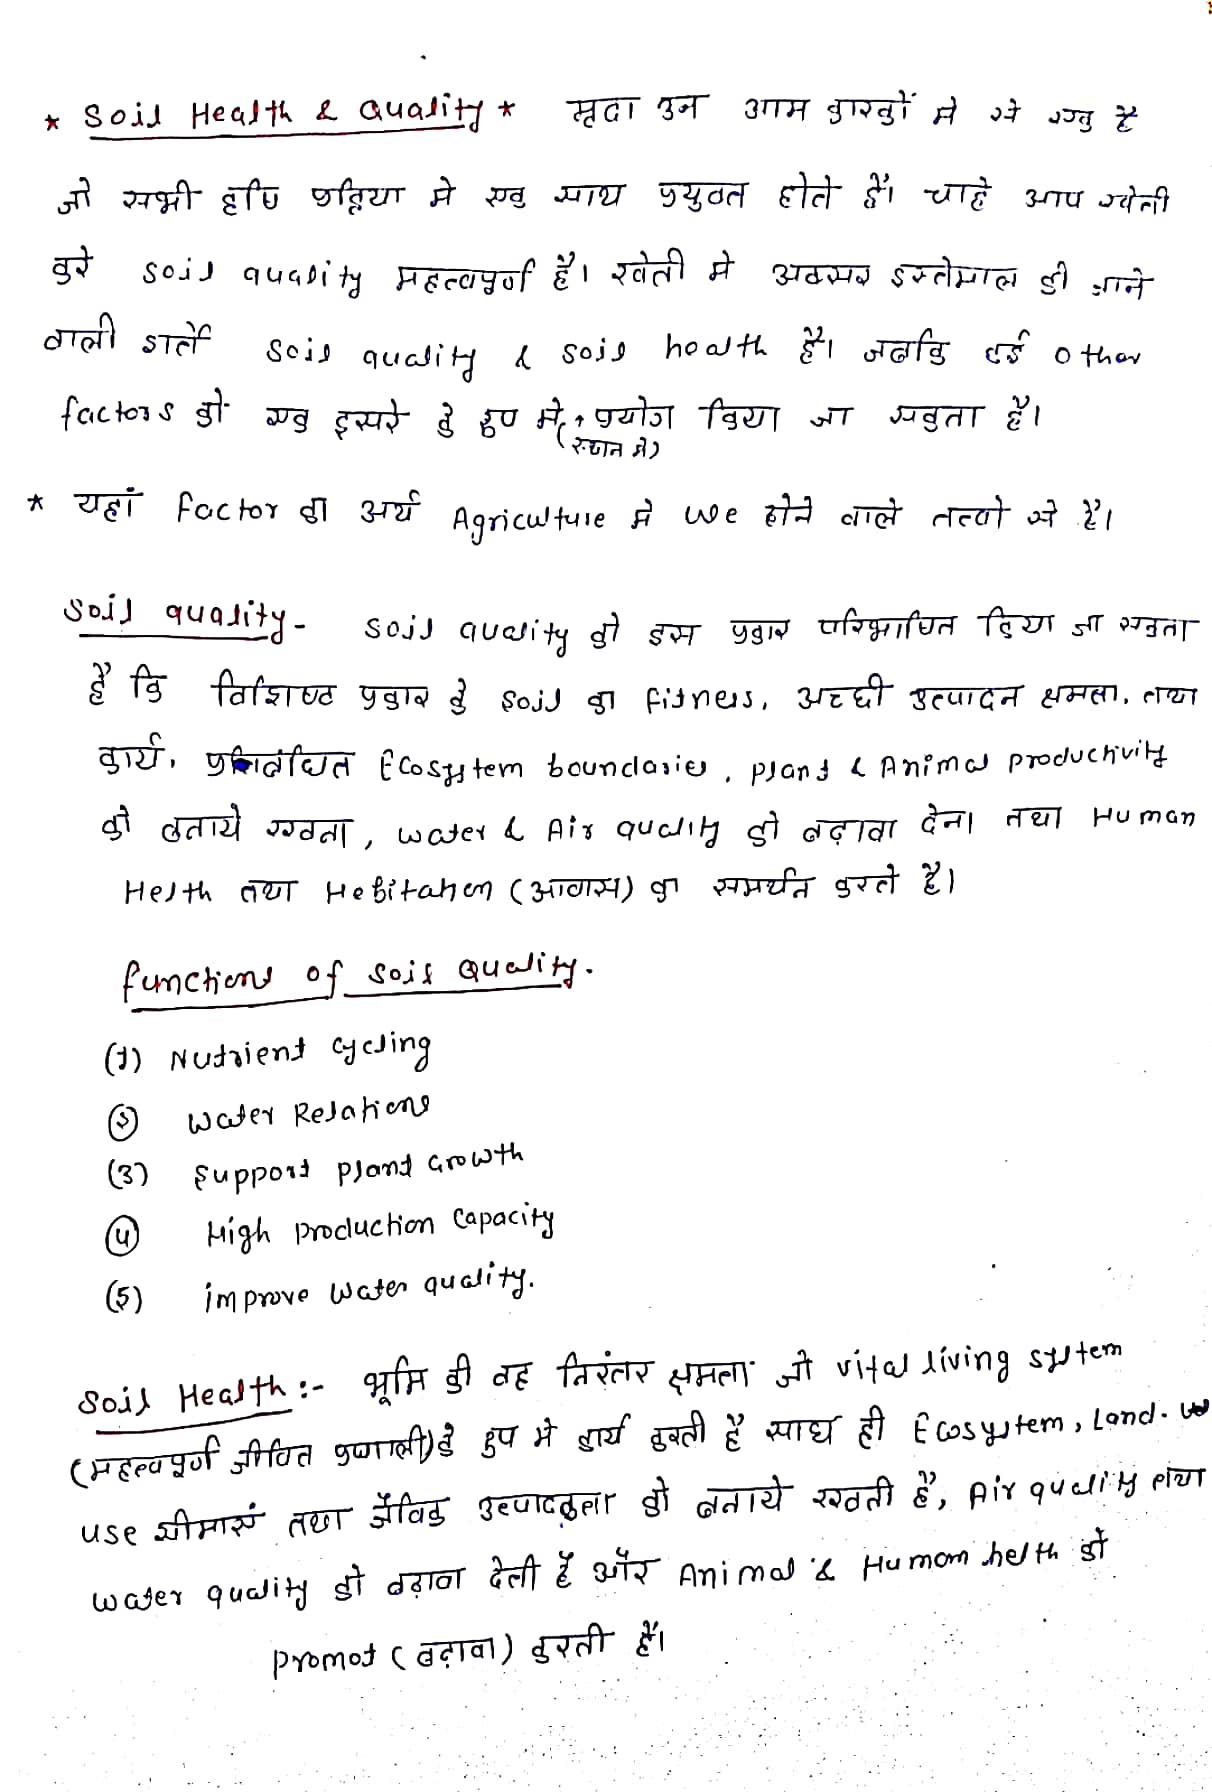 * Soil Health & Quality * मृदा उन आम कारकों मे से एक है
जो सभी कृषि प्रक्रिया मे एक साथ प्रयुक्त होते हैं। चाहे आप खेती
करे soil quality महत्वपूर्ण है। खेती मे अक्सर इस्तेमाल की जाने
वाली शर्ते soil quality & soil health हैं। जबकि कई other
factors को एक दूसरे के रूप मे, प्रयोग किया जा सकता है।
(स्थान मे)
* यहां factor का अर्थ Agriculture मे use होने वाले तत्वो से है।
Soil quality - soil quality को इस प्रकार परिभाषित किया जा सकता
है कि विशिष्ट प्रकार के soil का fitness, अच्छी उत्पादन क्षमता, तथा
कार्य, प्रतिबंधित Ecosystem boundaries, plant & Animal productivity
को बनाये रखना, water & Air quality को बढ़ावा देना तथा Human
Helth तथा Hebitation (आवास) का समर्थन करते है।
functions of soil Quality.
(1) Nutrient cycling
② water Relations
(3) support plant Growth
④ High production capacity
(5) improve water quality.
Soil Health :- भूमि की वह निरंतर क्षमता जो vital living system
(महत्वपूर्ण जीवित प्रणाली) के रूप मे कार्य करती है साथ ही Ecosystem, Land.
use सीमाएं तथा जैविक उत्पादकता को बनाये रखती है, Air quality तथा
water quality को बढ़ावा देती है और Animal & Human helth को
promot (बढ़ावा) करती हैं।